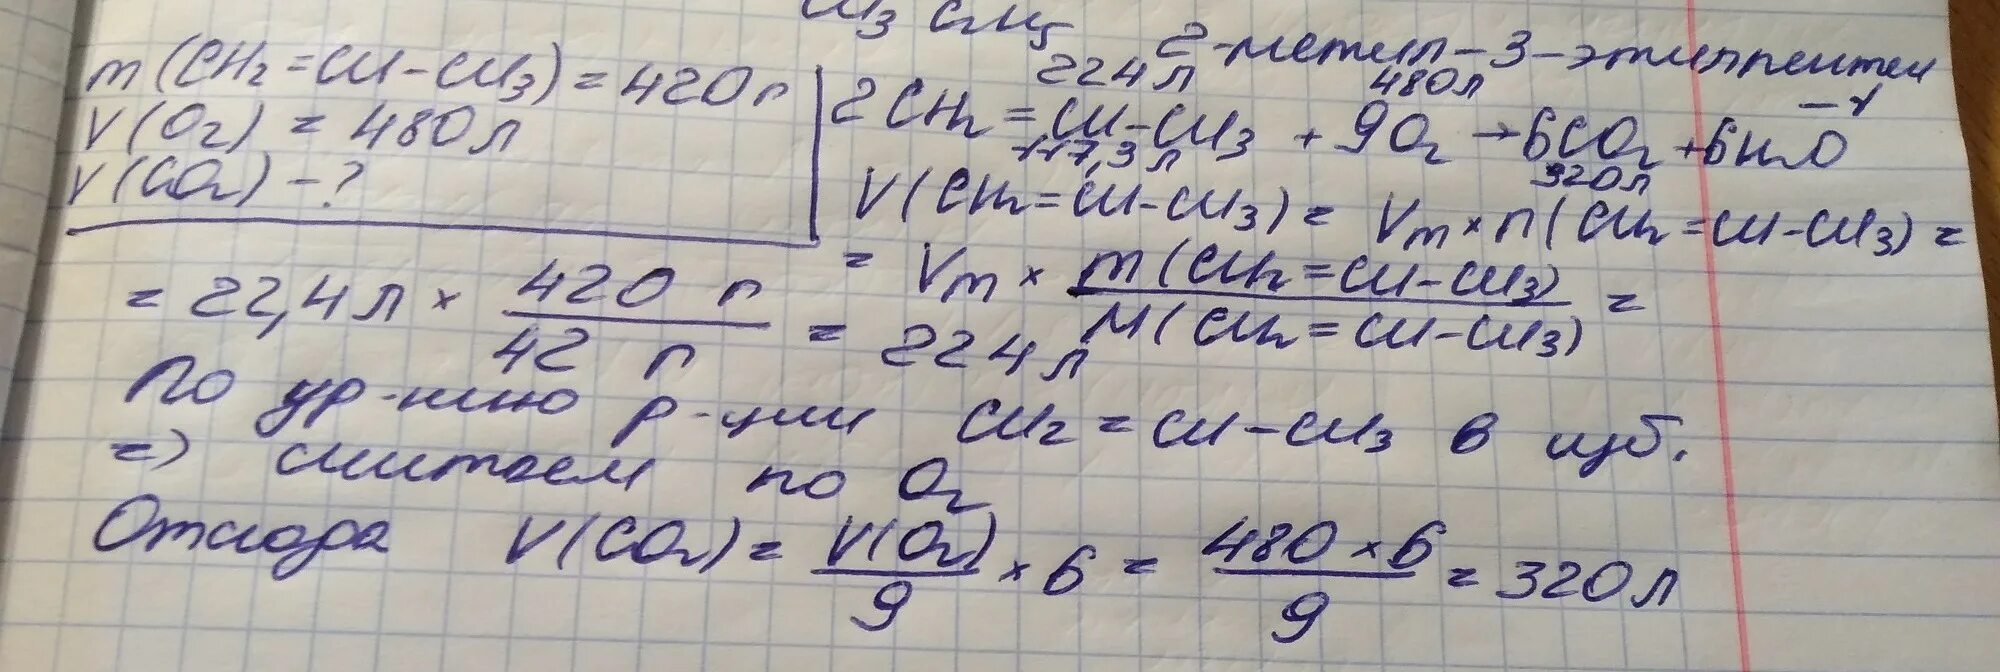 CH₃ C₂H₅
2-метил-3-этилпентен
-1
m(CH₂=CH-CH₃) = 420 г
V(O₂) = 480 л
V(CO₂) - ?
224 л 480 л
2CH₂=CH-CH₃ + 9O₂ → 6CO₂ + 6H₂O
117,3 л 320 л
V(CH₂=CH-CH₃) = Vm × n(CH₂=CH-CH₃) =
= Vm × m(CH₂=CH-CH₃) / M(CH₂=CH-CH₃) =
= 22,4 л × 420 г / 42 г = 224 л
По ур-нию р-ции CH₂=CH-CH₃ в изб.
=) считаем по O₂
Отсюда V(CO₂) = V(O₂) / 9 × 6 = 480 × 6 / 9 = 320 л